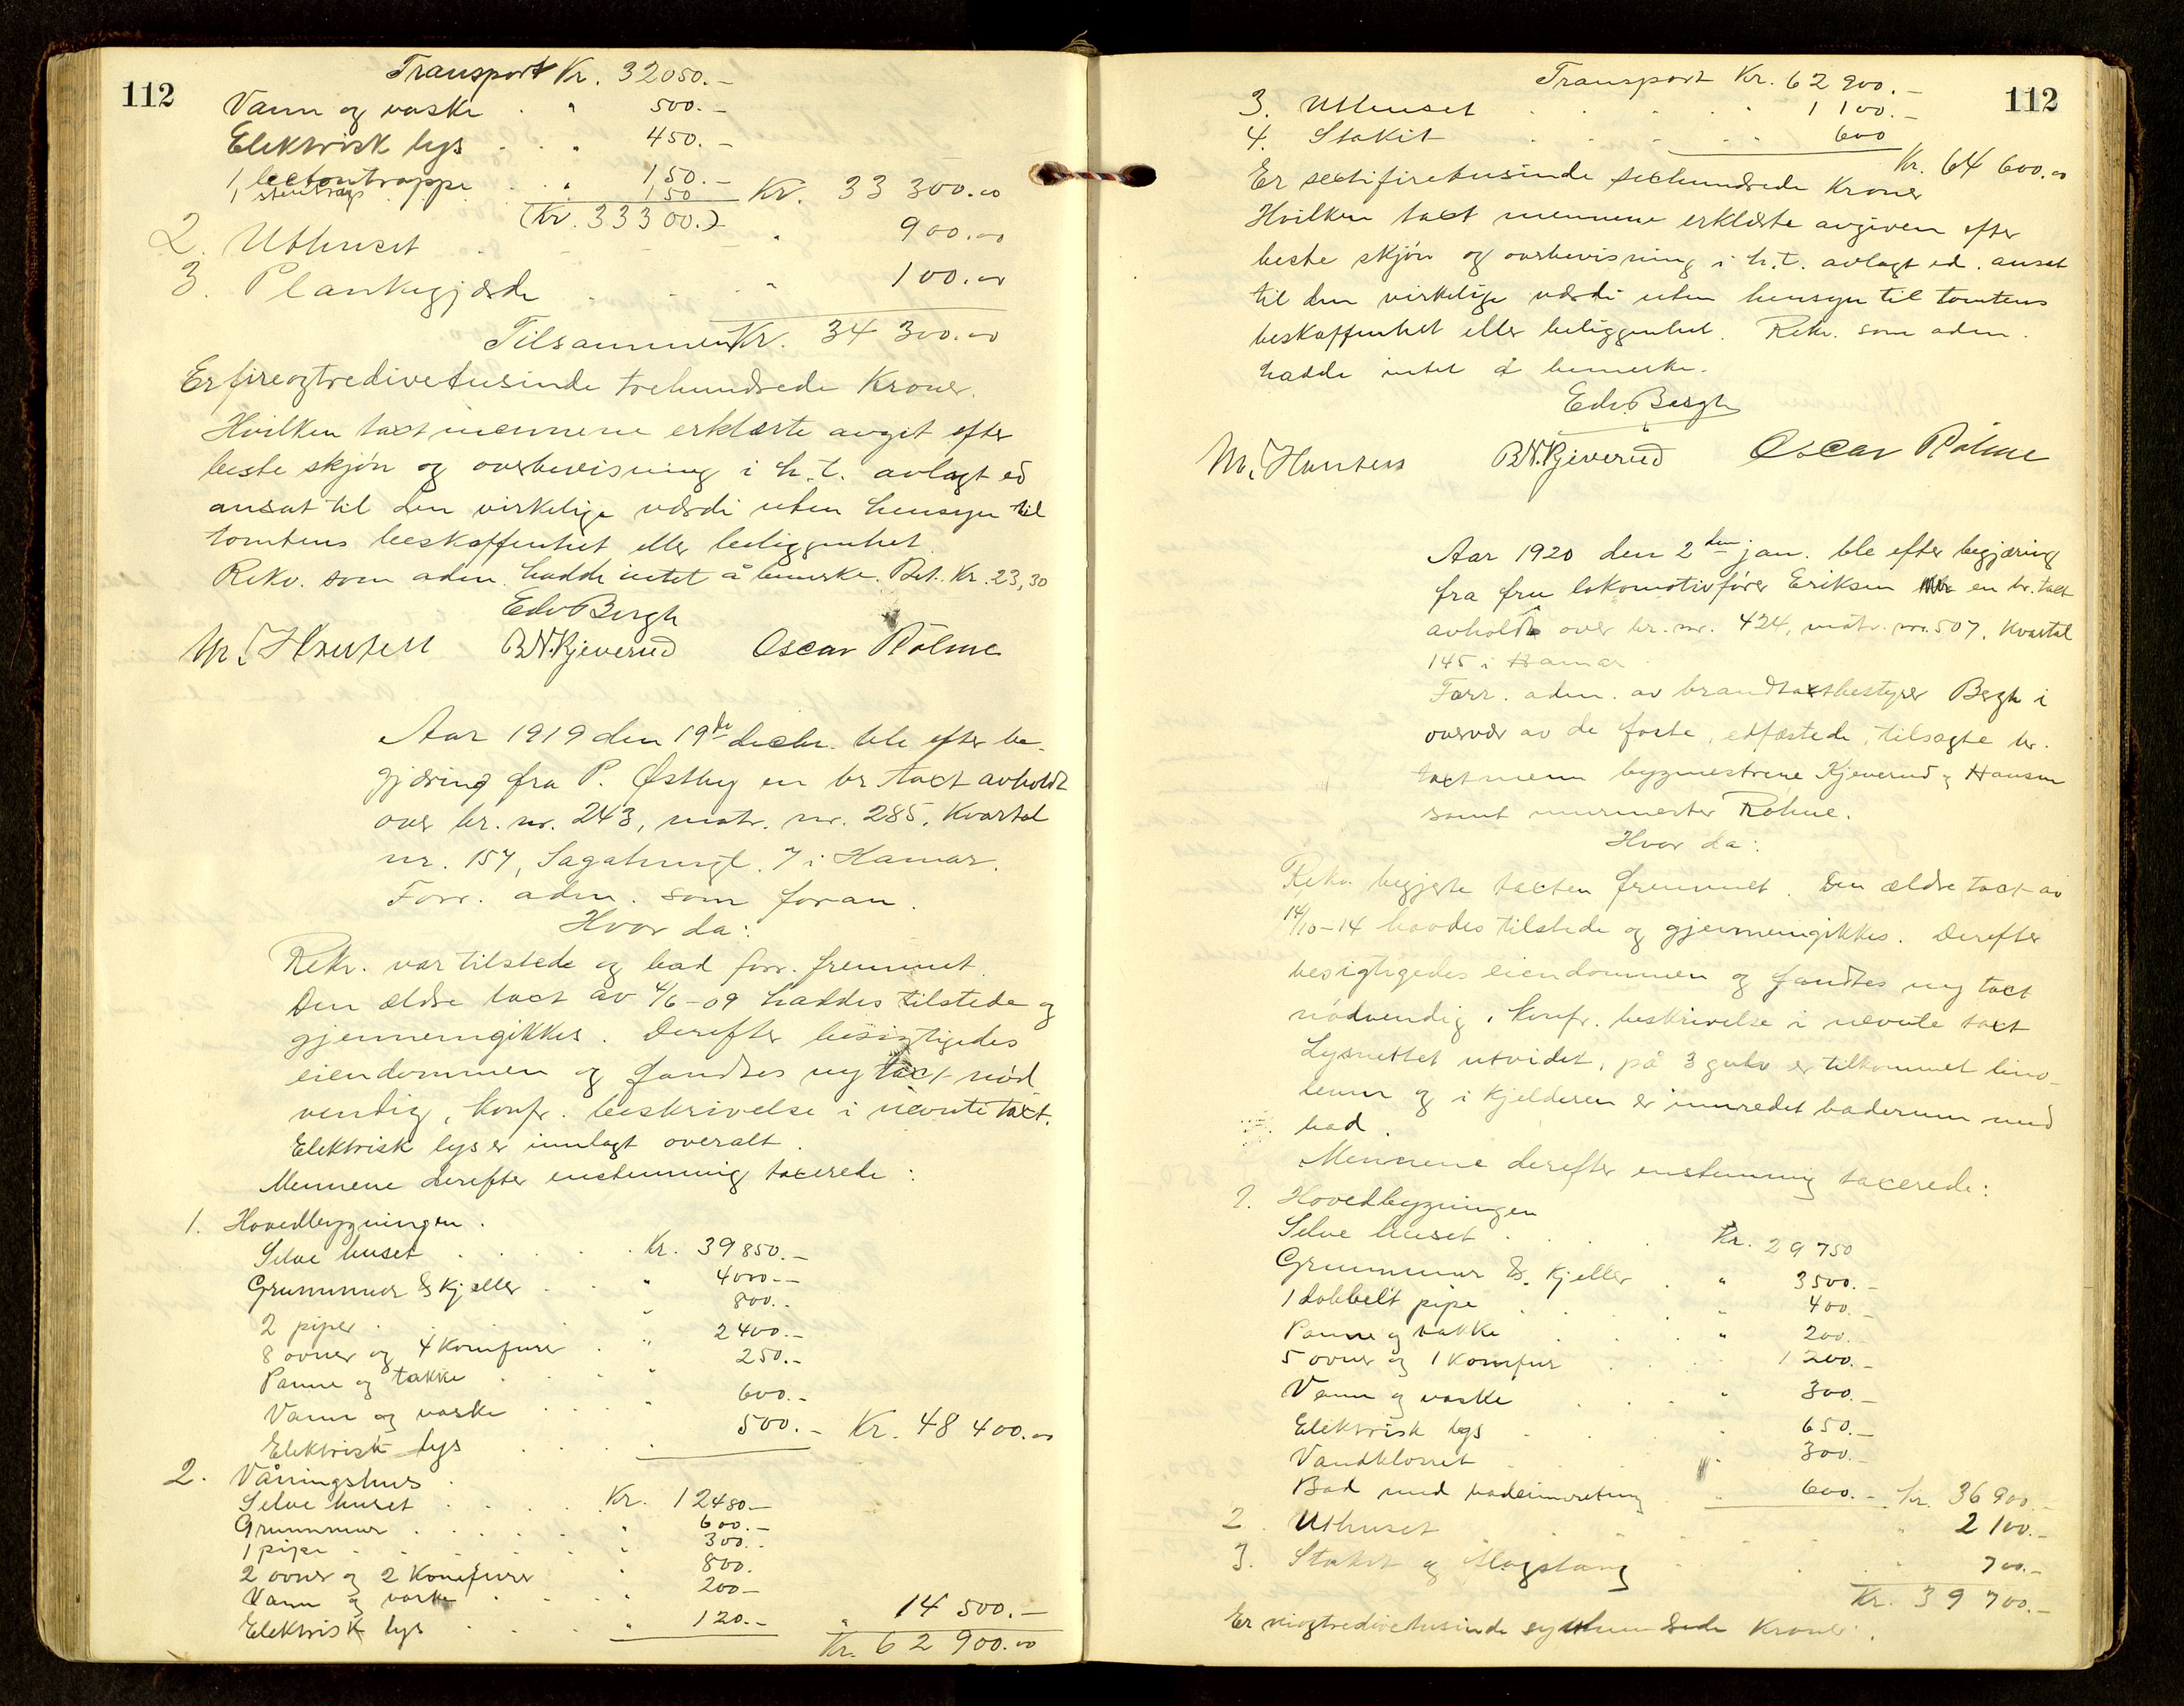 112
Transport Kr. 32050.-
Vann og vaske . " 500.-
Elektrisk lys . . " 450.-
1 betontrappe . . " 150.-
1 stentrap. . . 150 Kr. 33 300.00
(Kr. 33300.)
2. Uthuset . . . " 900.00
3. Plankegjærde . . . " 100.00
Tilsammen Kr. 34 300.00
Er fireogtredivetusinde trehundrede Kroner.
Hvilken taxt mennene erklærte avgit efter
beste skjøn og overbevisning i h.t. avlagt ed
ansat til den virkelige værdi uten hensyn til
tomtens beskaffenhet eller beliggenhet.
Rekv. som aden. hadde intet å bemerke. Bet. Kr. 23,30
Edv Bergh
M. Hansen B.N. Kjeverud Oscar Rølme
Aar 1919 den 19de decbr. ble efter be-
gjæring fra P. Østby en br. taxt avholdt
over br. nr. 243, matr. nr. 285, Kvartal
nr. 157, Sagatungt. 7 i Hamar.
Forr. adm. som foran.
Hvor da:
Rekv. var tilstede og bad forr. fremmet.
Den ældre taxt av 4/6-09 haddes tilstede og
gjennemgikkes. Derefter besigtigedes
eiendommen og fandtes ny taxt nød
vendig, konfr. beskrivelse i nævnte taxt.
Elektrisk lys er innlagt overalt.
Mennene derefter enstemmig taxerede:
1. Hovedbygningen.
Selve huset . . . . Kr. 39850.-
Grunnmur & Kjeller . . " 4000.-
2 piper . " 800.-
8 ovner og 4 Komfurer . " 2400.-
Panne og takke . . . " 250.-
Vann og vaske . . . " 600.-
Elektrisk lys . . . . 500.- Kr. 48 400.00
2. Våningshus.
Selve huset . . . . Kr. 12480.-
Grunnmur . . . . . " 600.-
1 pipe . . . . . . " 300.-
2 ovner og 2 Komfurer . " 800.
Vann og vaske . . . . " 200.-
Elektrisk lys . . . . " 120.- " 14 500.-
Kr. 62 900.00
112
Transport Kr. 62 900.-
3. Uthuset . . . . . " 1 100.-
4. Stakit . . . . . . 600
Kr. 64 600.00
Er sextifiretusinde sexhundrede Kroner
Hvilken taxt mennene erklærte avgiven efter
beste skjøn og overbevisning i h.t. avlagt ed. anset
til den virkelige værdi uten hensyn til tomtens
beskaffenhet eller beliggenhet. Rekv. som aden.
hadde intet å bemerke.
Edv. Bergh
M. Hansen B.N. Kjeverud Oscar Rølme
Aar 1920 den 2den jan. ble efter begjæring
fra fru lokomotivfører Eriksen en br. taxt
avholdt over br. nr. 424, matr. nr. 507, Kvartal
145 i Hamar.
Forr. adm. av brandtaxtbestyrer Bergh i
overvær av de faste, edfæstede, tilsagte br.
taxtmenn bygmestrene Kjeverud og Hansen
samt murmester Rølme.
Hvor da:
Rekv. begjerte taxten fremmet. Den ældre taxt av
14/10-14 havdes tilstede og gjennemgikkes. Derefter
besigtigedes eiendommen og fandtes ny taxt
nødvendig, konfr. beskrivelse i nevnte taxt
Lysnettet utvidet, på 3 gulv er tilkommet lino-
leum og i kjelderen er innredet baderum med
bad.
Mennene derefter enstemmig taxerede:
1. Hovedbygningen
Selve huset . . . . Kr. 29 750
Grunnmur & Kjeller . " 3500.-
1 dobbelt pipe . . . " 400.-
Panne og takke . . . " 200.-
5 ovner og 1 Komfur . . . 1 200.-
Vann og vaske . . . " 300.-
Elektrisk lys . . . " 650.-
Vandklosset . . . " 300.-
Bad med badeinnretning . " 600.- Kr. 36 900.-
2. Uthuset . . . . " 2 100.-
3. Stakit og flagstang . . . . 700.-
Kr. 39 700.-
Er niogtredivetusinde syvhundrede Kroner.